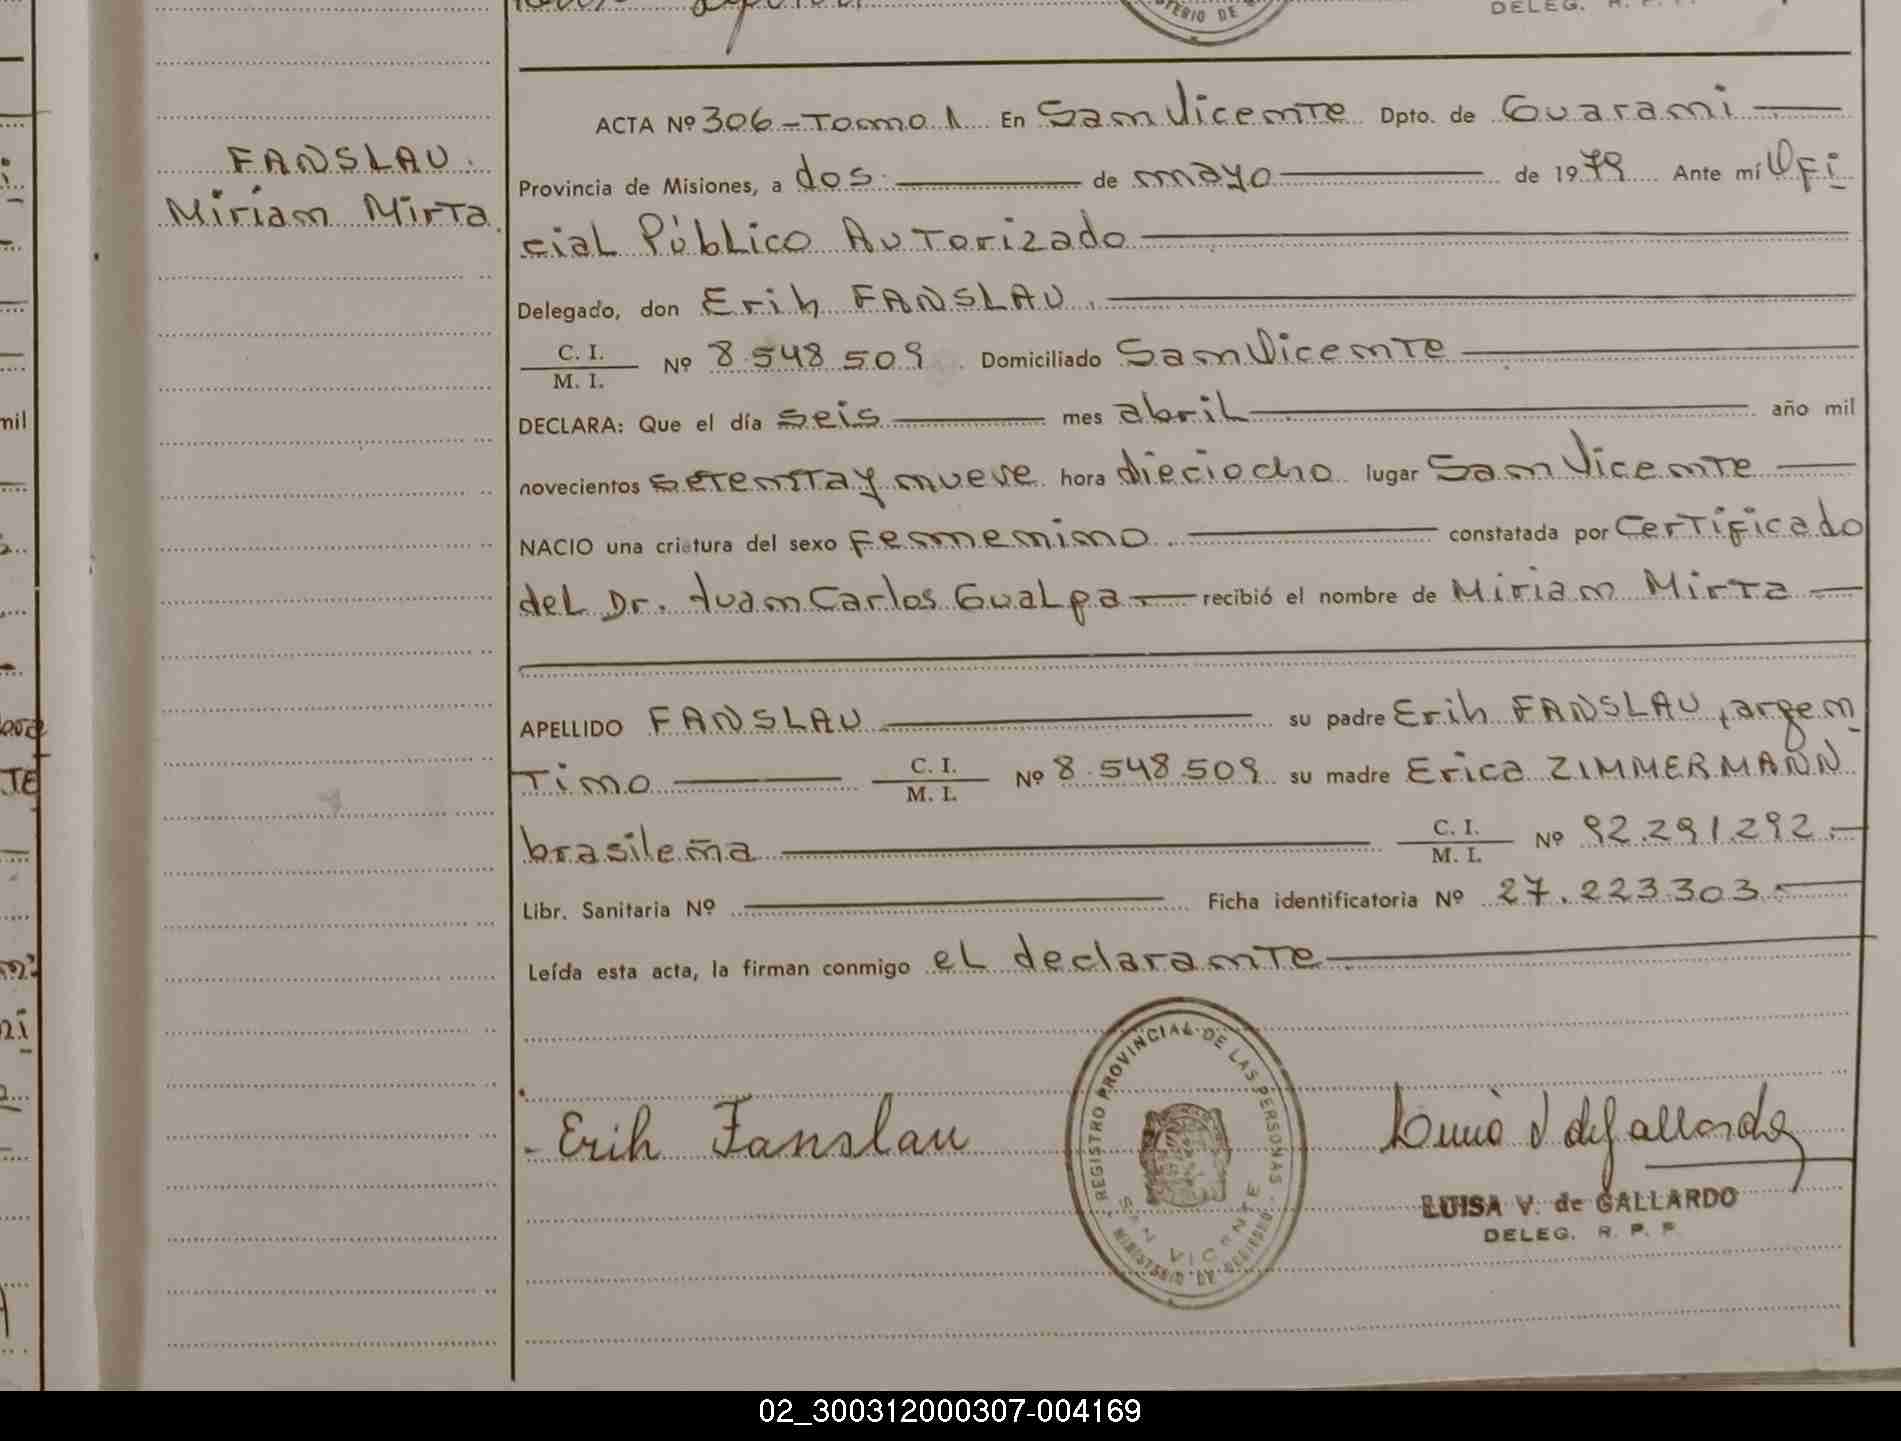 DELEG. R. P. P.
TERIO DE
FANSLAU.
Miriam Mirta.
ACTA Nº 306 - Tomo 1 En San Vicente Dpto. de Guaraní
Provincia de Misiones, a dos de mayo de 1979 Ante mí Ofi
cial Público Autorizado
Delegado, don Erih FANSLAU.
C. I.
M. I. Nº 8.548.509 Domiciliado San Vicente
DECLARA: Que el día seis mes abril año mil
novecientos setenta y nueve hora dieciocho lugar San Vicente
NACIO una criatura del sexo femenino constatada por Certificado
del Dr. Juan Carlos Gualpa recibió el nombre de Miriam Mirta
APELLIDO FANSLAU su padre Erih FANSLAU, argen
tino C. I.
M. I. Nº 8.548.509 su madre Erica ZIMMERMANN
brasileña C. I.
M. I. Nº 92.291.292.
Libr. Sanitaria Nº Ficha identificatoria Nº 27.223.303.
Leída esta acta, la firman conmigo el declarante
REGISTRO PROVINCIAL DE LAS PERSONAS
SAN VICENTE
Erih Fanslau
LUISA V. de GALLARDO
DELEG. R. P. P.
02_300312000307-004169